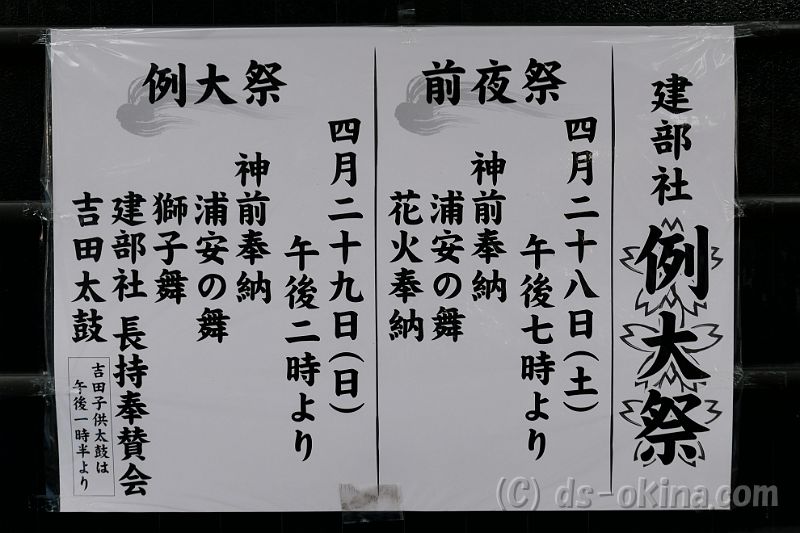 建部社 例大祭
前夜祭
四月二十八日(土)
午後七時より
神前奉納
浦安の舞
花火奉納
例大祭
四月二十九日(日)
午後二時より
神前奉納
浦安の舞
獅子舞
建部社 長持奉賛会
吉田太鼓
吉田子供太鼓は
午後一時半より
(C) ds-okina.com